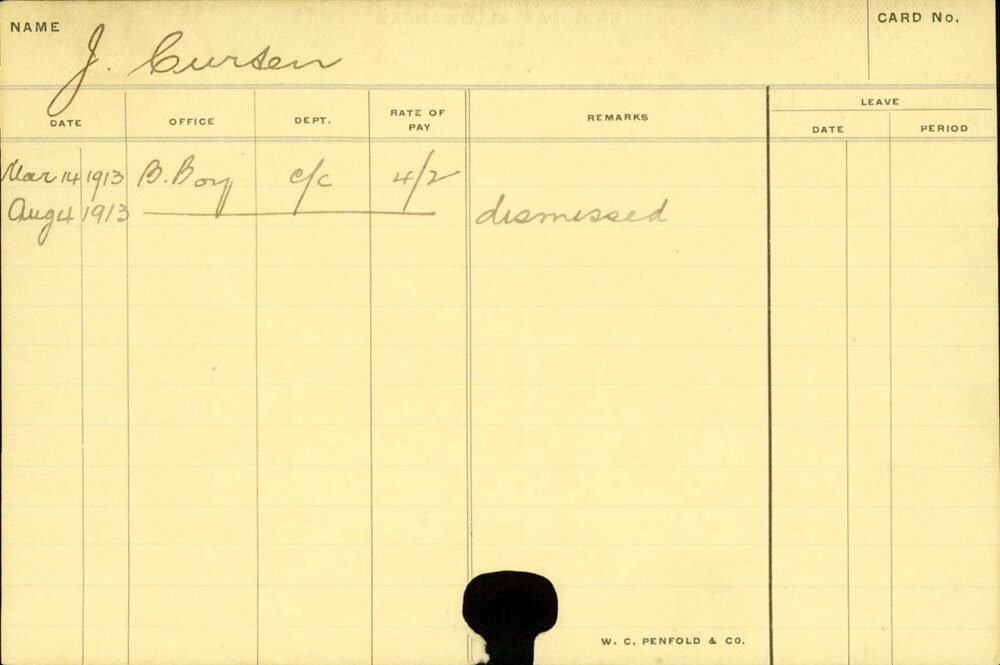 NAME
J. Cursen
CARD No.
DATE OFFICE DEPT. RATE OF PAY REMARKS LEAVE
DATE PERIOD
Mar 14 1913 B. Boy c/c 4/2
Aug 4 1913 dismissed
W. C. PENFOLD & CO.